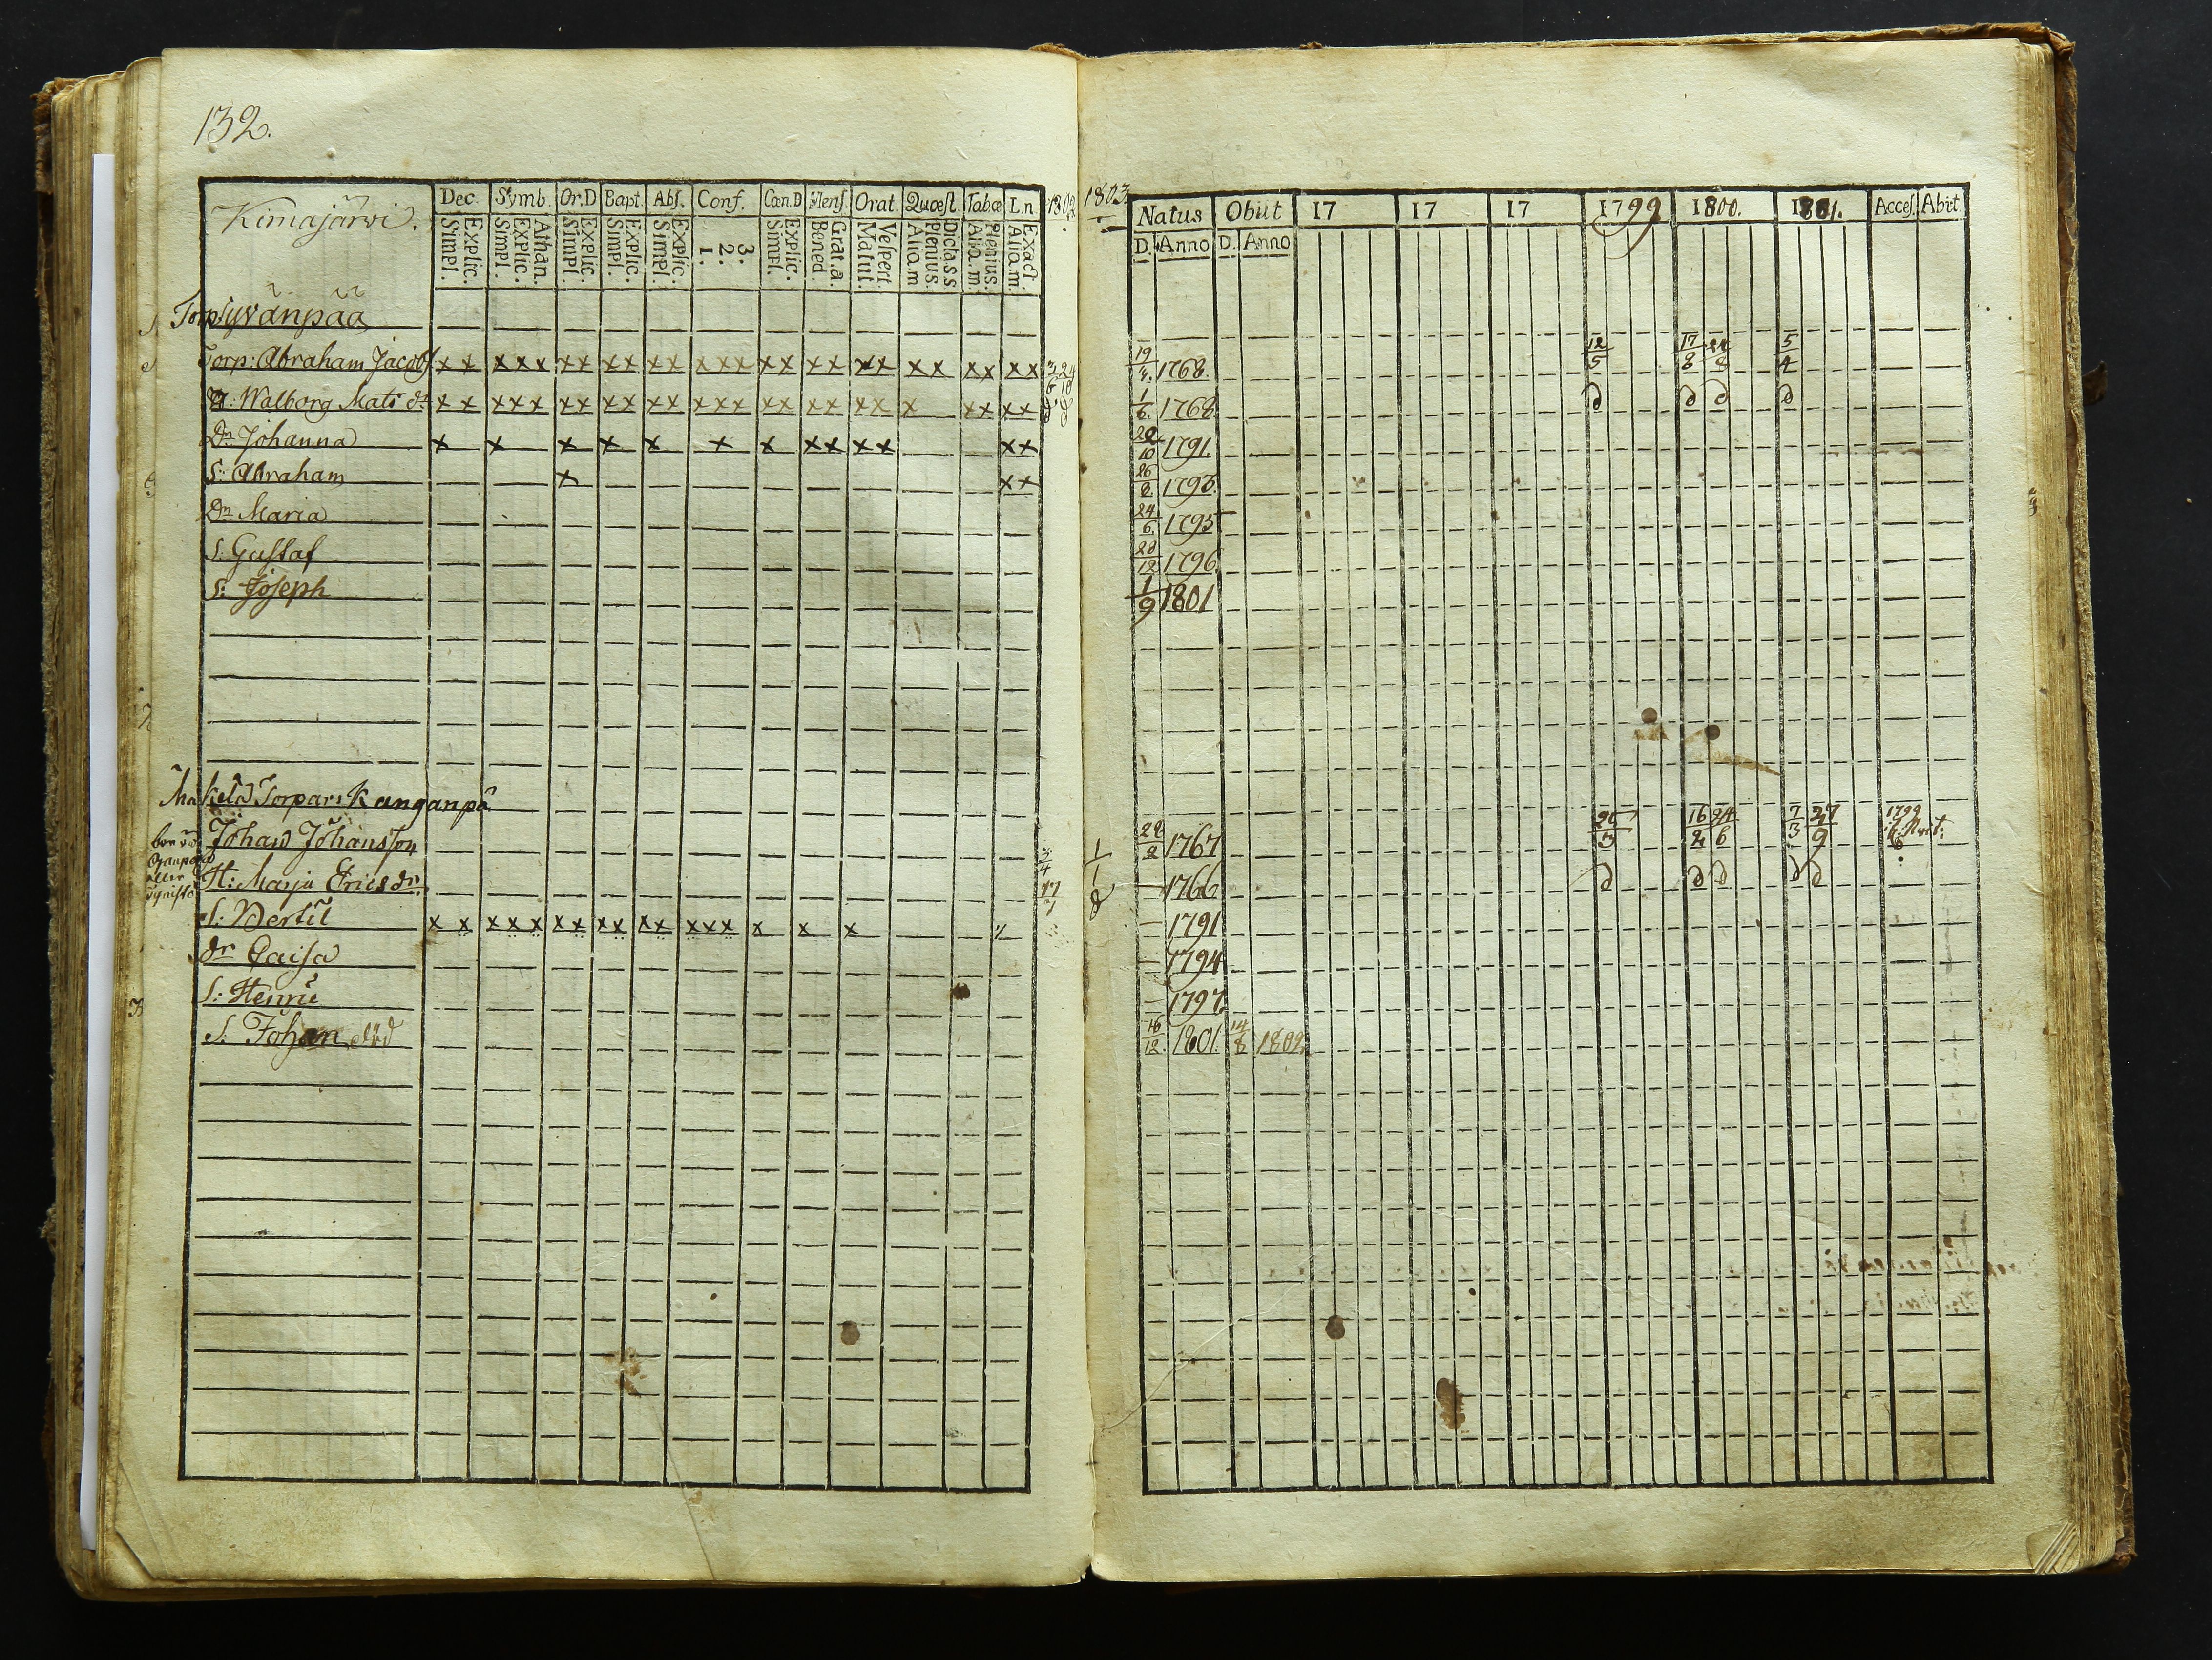 132.
Kimajärvi.
Dec. Symb. Or.D Bapt. Abſ. Conf. Cœn.D Menſ. Orat. Quœſt. Tabœ L.n. 1802.
Explic. Simpl. Athan. Explic. Simpl. Explic. Simpl. Explic. Simpl. Explic. Simpl. 3. 2. 1. Explic. Simpl. Grat.a. Bened. Veſpert. Matut. Dictass Plenius. Aliq.m Plenius. Aliq.m. Exact. Aliq.m.
Torp Syvänpää
Torp: Abraham Jacobſ x x x x x x x x x x x x x x x x x x x x x x x x x x
H: Walborg Mats dr x x x x x x x x x x x x x x x x x x x x x x x x x
Dr Johanna x x x x x x x x x x x x x
S: Abraham x x x
Dr Maria
S: Gustaf
S: Joseph
Mäkelä Torpari Kanganpä
Johan Johansson
H: Marja Erics dr
S: Bertil x x x x x x x x x x x x x x x x x
dr Caisa
S: Henric
S. Johan död
1803
Natus Obiit 17 17 17 1799 1800. 1801. Acceſ. Abit.
D. Anno D. Anno
19/4 1768. 12/5 17/8 5/4
1/6 1768 d d d d
1791.
26/8 1793.
24/6 1795
28/12 1796
1/9 1801
22/2 1767 16/2 24/6 7/3 27/9 1799
1766 d d d d d
1791
1794
1797.
16/12 1801. 14/8 1802.